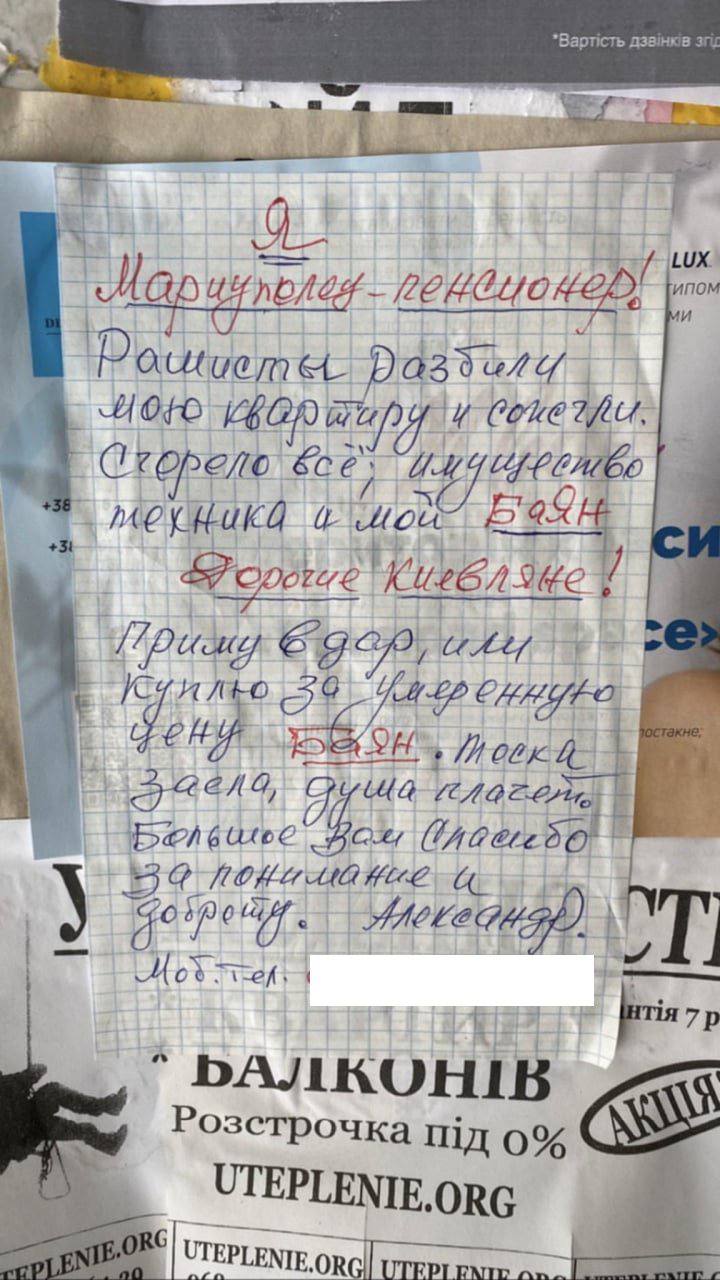 *Вартість дзвінків згід
Я
Мариуполец-пенсионер!
Рашисты разбили
мою квартиру и сожгли.
Сгорело всё; имущество
техника и мой Баян
Дорогие Киевляне!
Приму в дар, или
куплю за умеренную
цену Баян. Тоска
заела, душа плачет.
Большое Вам Спасибо
за понимание и
доброту. Александр.
Моб. тел.
LUX
типом
ми
+38
+38
си
се»
постакне;
У
СТІ
нтія 7 р
БАЛКОНІВ
АКЦІЯ
Розстрочка під 0%
UTEPLENIE.ORG
TEPLENIE.ORG
UTEPLENIE.ORG
UTEPLENIE.ORG